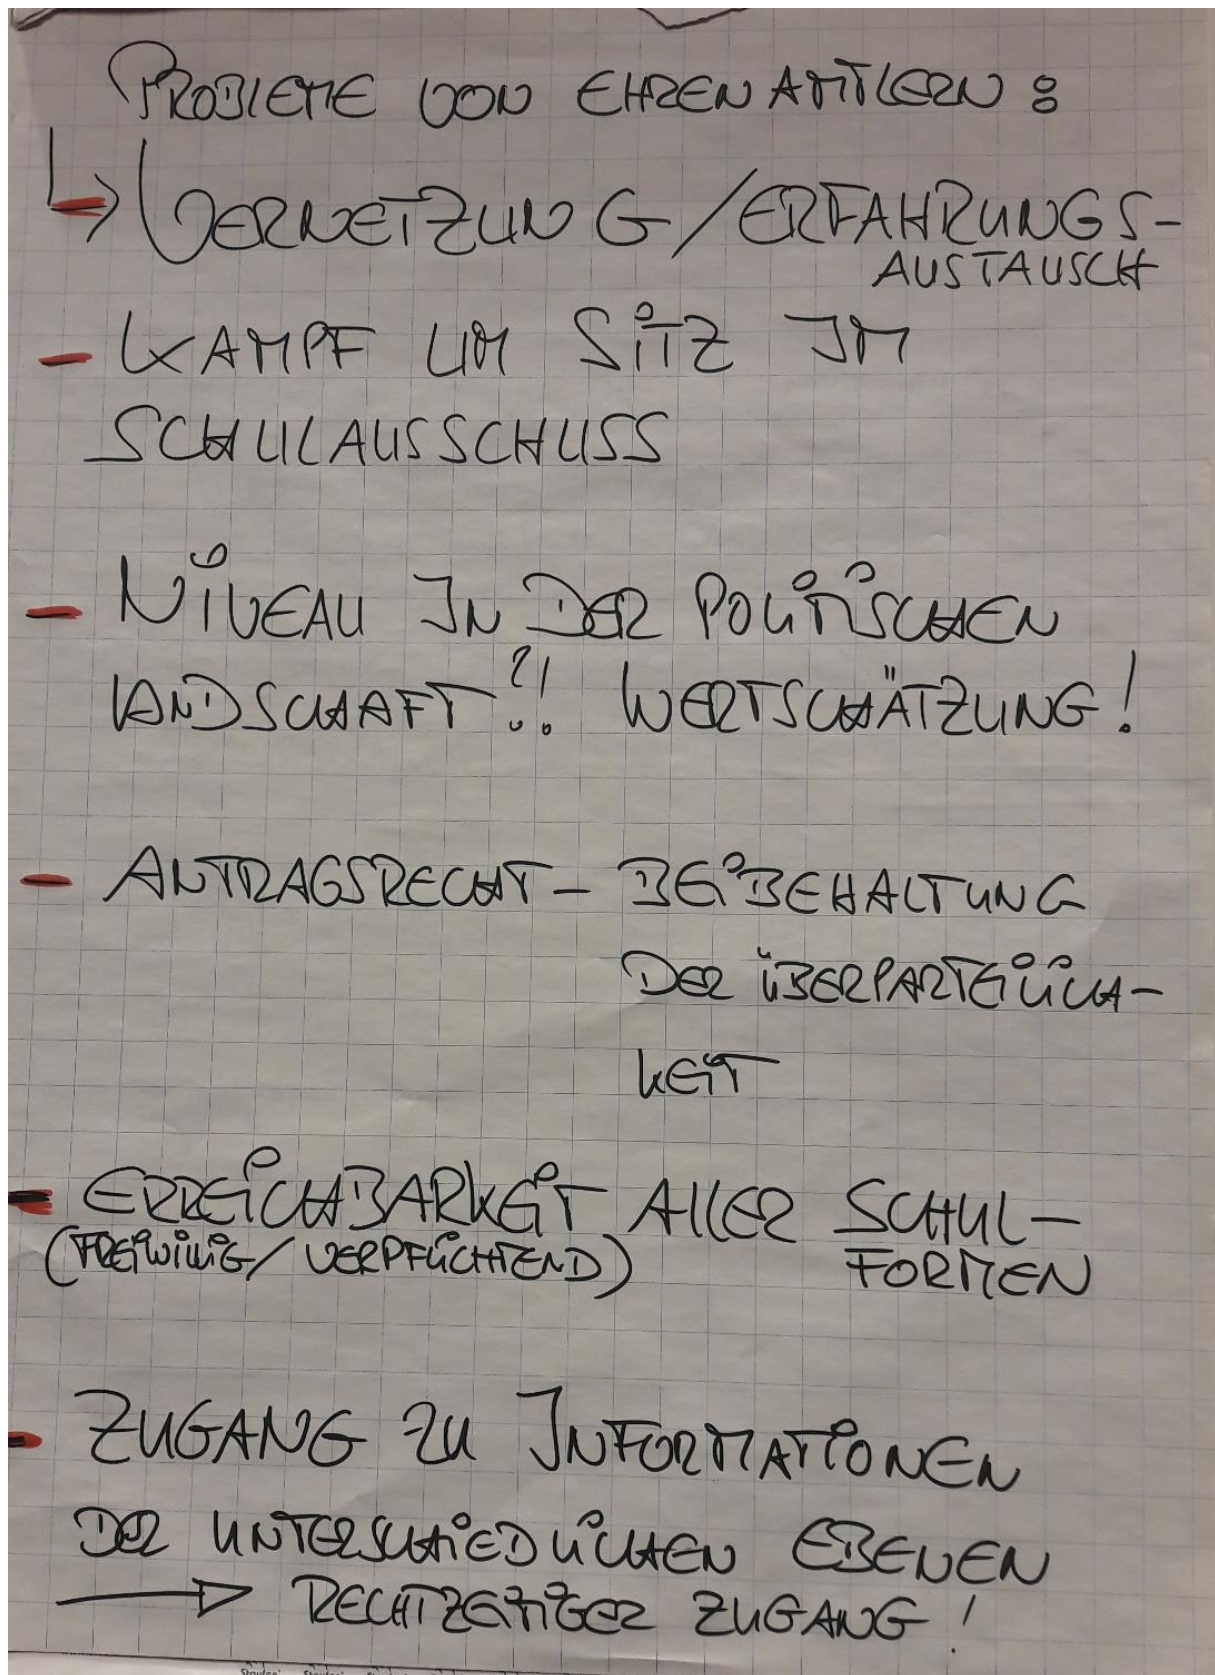 PROBLEME VON EHRENAMTLERN:
→ VERNETZUNG/ERFAHRUNGS-
AUSTAUSCH
- KAMPF UM SITZ IM
SCHULAUSSCHUSS
- NIVEAU IN DER POLITISCHEN
LANDSCHAFT?! WERTSCHÄTZUNG!
- ANTRAGSRECHT - BEIBEHALTUNG
DER ÜBERPARTEILICH-
KEIT
- ERREICHBARKEIT ALLER SCHUL-
(FREIWILLIG/VERPFLICHTEND) FORMEN
- ZUGANG ZU INFORMATIONEN
DER UNTERSCHIEDLICHEN EBENEN
→ RECHTZEITIGER ZUGANG!